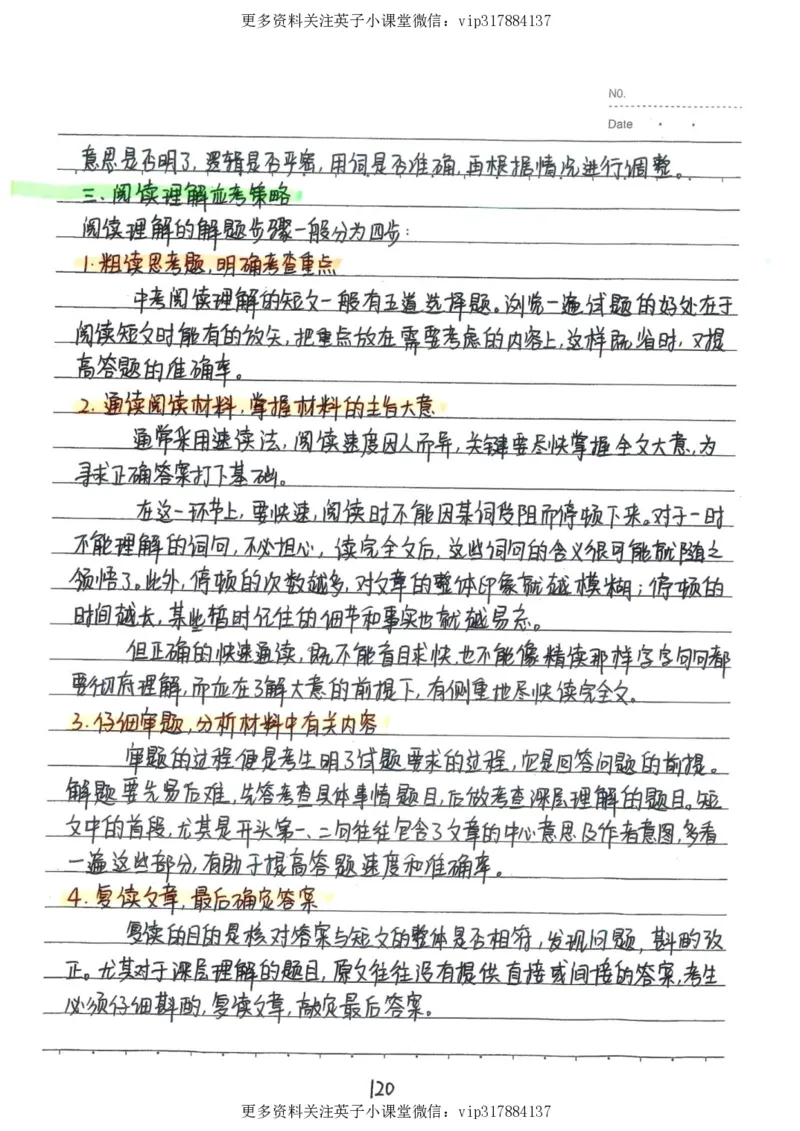 更多资料关注英子小课堂微信：vip317884137
NO.
Date
意思是否明了,逻辑是否严密,用词是否准确,再根据情况进行调整。
三、阅读理解应考策略
阅读理解的解题步骤一般分为四步：
1.粗读思考题,明确考查重点
中考阅读理解的短文一般有五道选择题。浏览一遍试题的好处在于
阅读短文时能有的放矢,把重点放在需要考虑的内容上,这样既省时,又提
高答题的准确率。
2.通读阅读材料,掌握材料的主旨大意
通常采用速读法,阅读速度因人而异,关键要尽快掌握全文大意,为
寻求正确答案打下基础。
在这一环节上,要快速,阅读时不能因某词受阻而停顿下来。对于一时
不能理解的词句,不必担心,读完全文后,这些词句的含义很可能就随之
领悟了。此外,停顿的次数越多,对文章的整体印象就越模糊；停顿的
时间越长,某些暂时记住的细节和事实也就越易忘。
但正确的快速通读,既不能盲目求快,也不能像精读那样字字句句都
要彻底理解,而应在了解大意的前提下,有侧重地尽快读完全文。
3.仔细审题,分析材料中有关内容
审题的过程便是考生明了试题要求的过程,它是回答问题的前提。
解题要先易后难,先答考查具体事情题目,后做考查深层理解的题目。短
文中的首段,尤其是开头第一、二句往往包含了文章的中心意思及作者意图,多看
一遍这些部分,有助于提高答题速度和准确率。
4.复读文章,最后确定答案
复读的目的是核对答案与短文的整体是否相符,发现问题,斟酌改
正。尤其对于深层理解的题目,原文往往没有提供直接或间接的答案,考生
必须仔细斟酌,复读文章,敲定最后答案。
120
更多资料关注英子小课堂微信：vip317884137